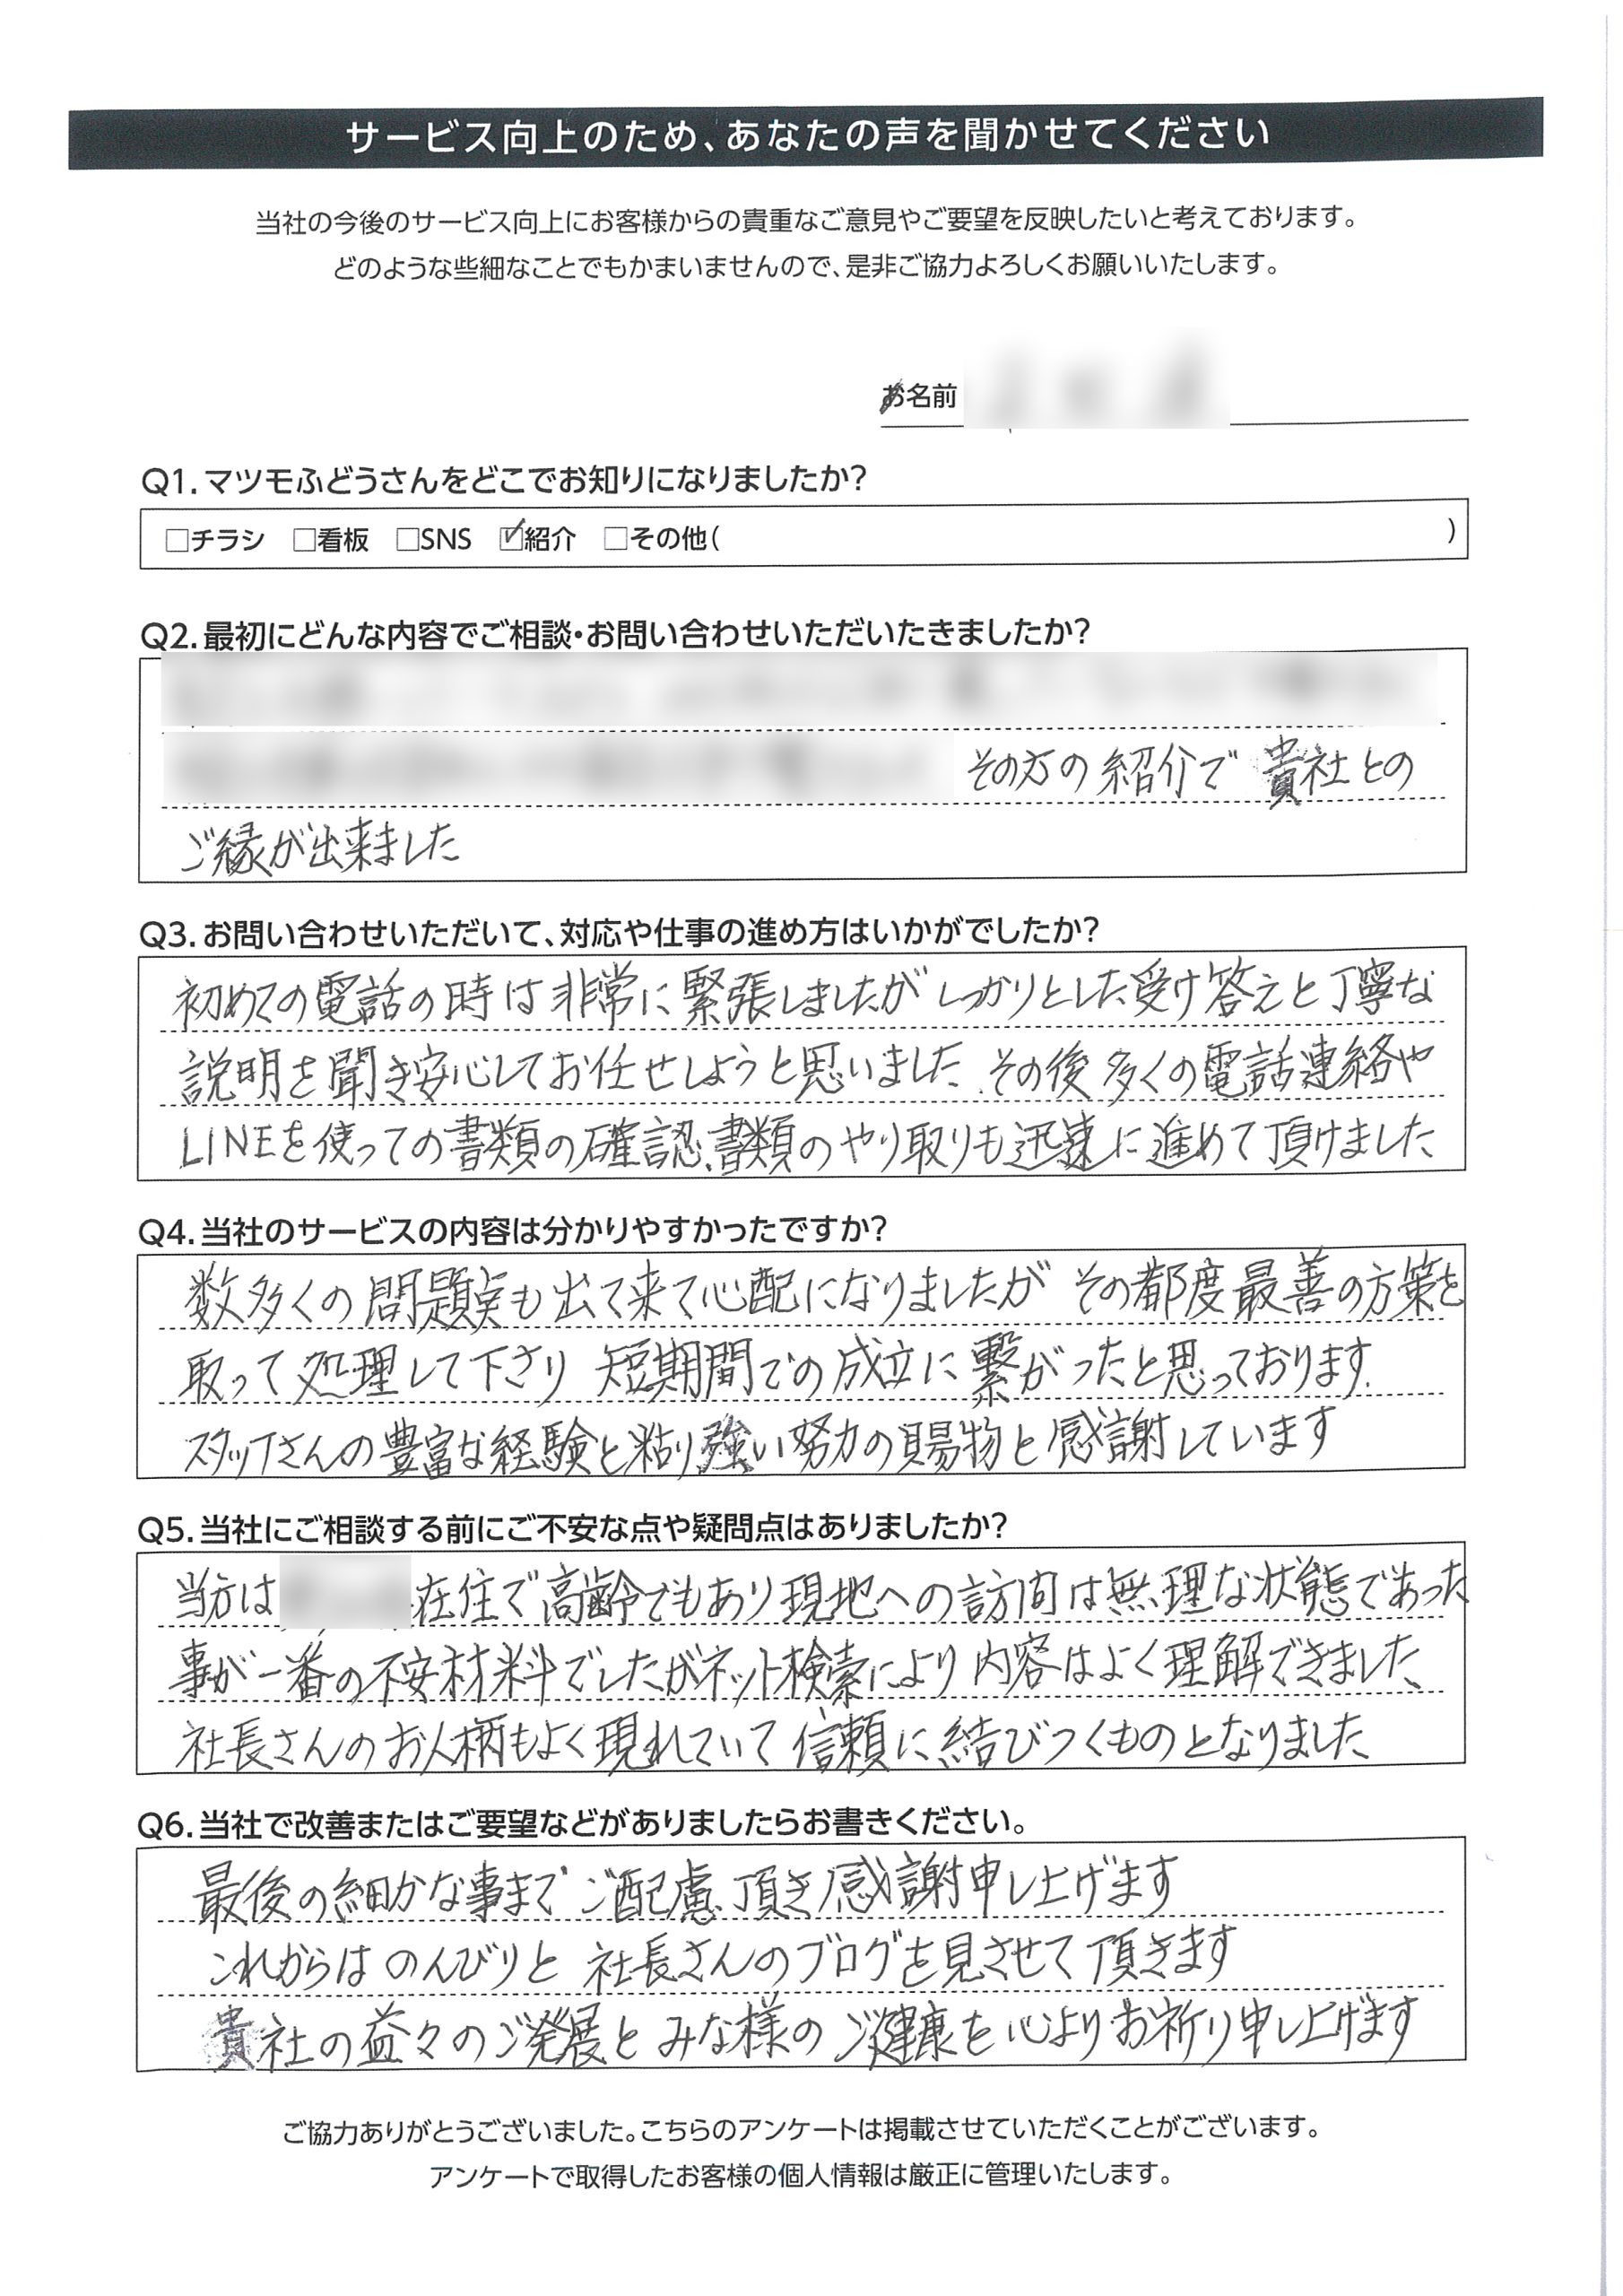 サービス向上のため、あなたの声を聞かせてください
当社の今後のサービス向上にお客様からの貴重なご意見やご要望を反映したいと考えております。
どのような些細なことでもかまいませんので、是非ご協力よろしくお願いいたします。
お名前
Q1.マツモふどうさんをどこでお知りになりましたか?
□チラシ □看板 □SNS ☑紹介 □その他( )
Q2.最初にどんな内容でご相談・お問い合わせいただいたきましたか?
その方の紹介で 貴社との
ご縁が出来ました
Q3.お問い合わせいただいて、対応や仕事の進め方はいかがでしたか?
初めての電話の時は非常に緊張しましたがしっかりとした受け答えと丁寧な
説明を聞き安心してお任せしようと思いました.その後多くの電話連絡や
LINEを使っての書類の確認、書類のやり取りも迅速に進めて頂けました
Q4.当社のサービスの内容は分かりやすかったですか?
数多くの問題点も出て来て心配になりましたが その都度最善の方策を
取って処理して下さり 短期間での成立に繋がったと思っております.
スタッフさんの豊富な経験と粘り強い努力の賜物と感謝しています
Q5.当社にご相談する前にご不安な点や疑問点はありましたか?
当方は 在住で高齢でもあり現地への訪問は無理な状態であった
事が一番の不安材料でしたがネット検索により内容はよく理解できました、
社長さんのお人柄もよく現れていて信頼に結びつくものとなりました
Q6.当社で改善またはご要望などがありましたらお書きください。
最後の細かな事までご配慮頂き感謝申し上げます
これからはのんびりと 社長さんのブログを見させて頂きます
貴社の益々のご発展とみな様のご健康を心よりお祈り申し上げます
ご協力ありがとうございました。こちらのアンケートは掲載させていただくことがございます。
アンケートで取得したお客様の個人情報は厳正に管理いたします。